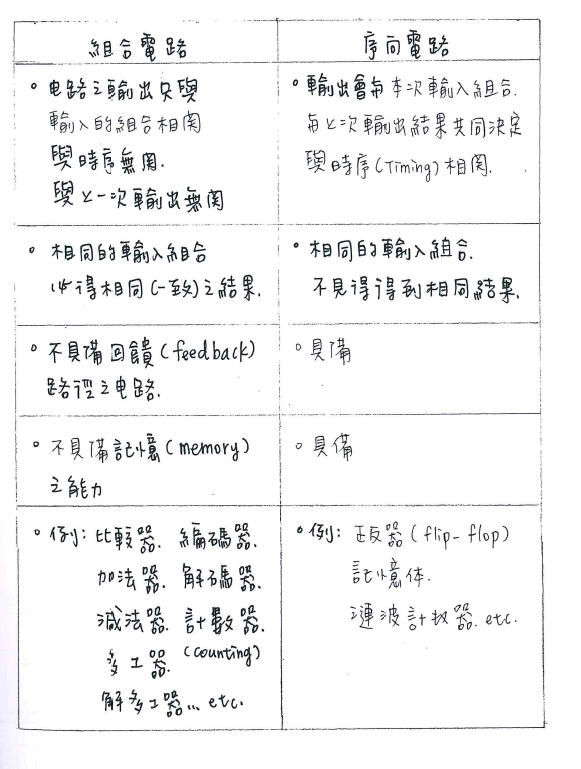 組合電路
序向電路
。电路之輸出只與
輸入的組合相関
與時序無関.
與上一次輸出無関
。輸出會与本次輸入組合.
与上次輸出結果共同決定
與時序(Timing)相関.
。相同的輸入組合
必得相同(一致)之結果.
。相同的輸入組合.
不見得得到相同結果.
。不具備回饋(feedback)
路徑之电路.
。具備
。不具備記憶(memory)
之能力
。具備
。例: 比較器. 編碼器.
加法器. 解碼器.
減法器. 計數器.
多工器. (counting)
解多工器... etc.
。例: 正反器(flip-flop)
記憶体.
漣波計数器. etc.